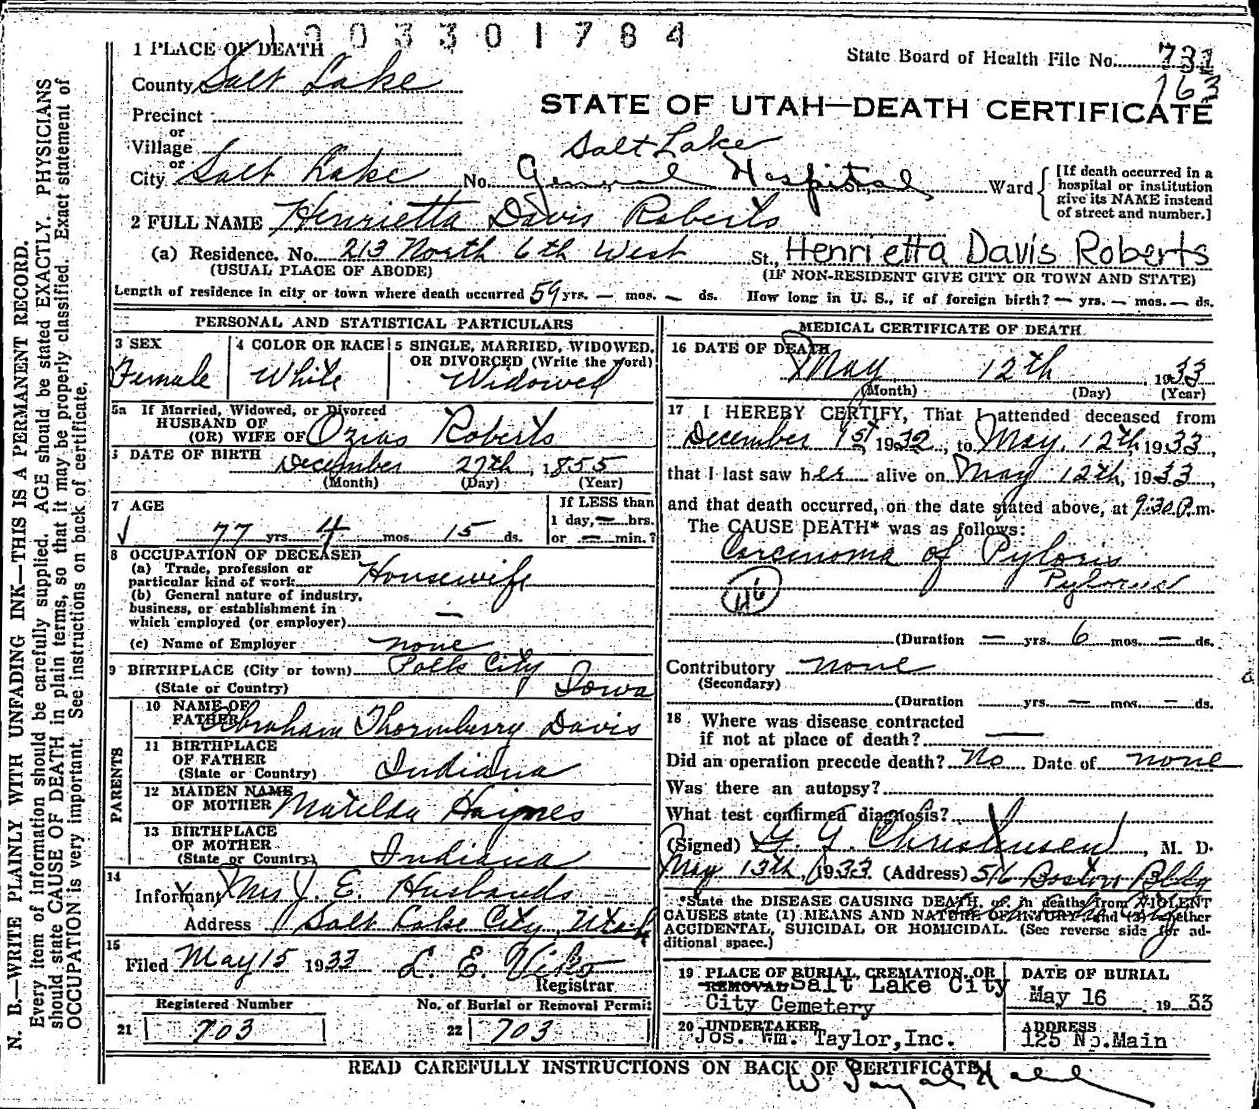 1003301784
1 PLACE OF DEATH
State Board of Health File No. 731
763
County Salt Lake
STATE OF UTAH—DEATH CERTIFICATE
Precinct
or
Village
or
Salt Lake
City Salt Lake No. General Hospital Ward
[If death occurred in a hospital or institution give its NAME instead of street and number.]
2 FULL NAME Henrietta Davis Roberts
(a) Residence. No. 213 North 6th West St. Henrietta Davis Roberts
(USUAL PLACE OF ABODE) (IF NON-RESIDENT GIVE CITY OR TOWN AND STATE)
Length of residence in city or town where death occurred 59 yrs. — mos. — ds. How long in U. S., if of foreign birth? — yrs. — mos. — ds.
PERSONAL AND STATISTICAL PARTICULARS
3 SEX Female
4 COLOR OR RACE White
5 SINGLE, MARRIED, WIDOWED, OR DIVORCED (Write the word) Widowed
5a If Married, Widowed, or Divorced
HUSBAND OF
(OR) WIFE OF Ozias Roberts
6 DATE OF BIRTH December 27th, 1855
(Month) (Day) (Year)
7 AGE
77 yrs. 4 mos. 15 ds.
If LESS than
1 day, — hrs.
or — min.?
8 OCCUPATION OF DECEASED
(a) Trade, profession or
particular kind of work Housewife
(b) General nature of industry,
business, or establishment in
which employed (or employer) —
(c) Name of Employer none
9 BIRTHPLACE (City or town) Polk City
(State or Country) Iowa
PARENTS
10 NAME OF
FATHER Abraham Thornberry Davis
11 BIRTHPLACE
OF FATHER
(State or Country) Indiana
12 MAIDEN NAME
OF MOTHER Matilda Haynes
13 BIRTHPLACE
OF MOTHER
(State or Country) Indiana
14
Informant Mrs J. E. Husbands
Address Salt Lake City, Utah
15
Filed May 15 1933 L. E. Viko
Registrar
Registered Number No. of Burial or Removal Permit
21 703 22 703
MEDICAL CERTIFICATE OF DEATH
16 DATE OF DEATH
May 12th, 1933
(Month) (Day) (Year)
17 I HEREBY CERTIFY, That I attended deceased from
December 1st 1932, to May, 12th, 1933,
that I last saw her alive on May 12th, 1933,
and that death occurred, on the date stated above, at 9:30 P.m.
The CAUSE DEATH* was as follows:
Carcinoma of Pyloris
Pylorus
46
(Duration — yrs. 6 mos. — ds.
Contributory none
(Secondary)
(Duration yrs. — mos. — ds.
18 Where was disease contracted
if not at place of death? —
Did an operation precede death? No Date of none
Was there an autopsy?
What test confirmed diagnosis?
(Signed) G. G. Christensen, M. D.
May 13th, 1933 (Address) 516 Boston Bldg
*State the DISEASE CAUSING DEATH, or, in deaths from VIOLENT
CAUSES state (1) MEANS AND NATURE OF INJURY and (2) whether
ACCIDENTAL, SUICIDAL OR HOMICIDAL. (See reverse side for ad-
ditional space.)
19 PLACE OF BURIAL, CREMATION, OR
REMOVAL Salt Lake City
City Cemetery
DATE OF BURIAL
May 16 1933
20 UNDERTAKER
Jos. Wm. Taylor, Inc.
ADDRESS
125 No. Main
READ CAREFULLY INSTRUCTIONS ON BACK OF CERTIFICATE
N. B.—WRITE PLAINLY WITH UNFADING INK—THIS IS A PERMANENT RECORD.
Every item of information should be carefully supplied. AGE should be stated EXACTLY. PHYSICIANS
should state CAUSE OF DEATH in plain terms, so that it may be properly classified. Exact statement of
OCCUPATION is very important. See instructions on back of certificate.